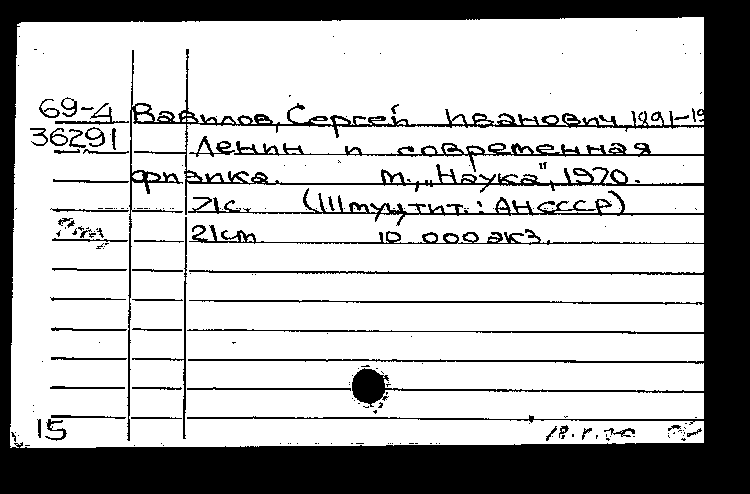 69-4 Вавилов, Сергей Иванович, 1891-19
36291 Ленин и современная
физика. М., „Наука", 1970.
71с. (Шмуцтит.: АН СССР)
21cm 10 000 экз.
15